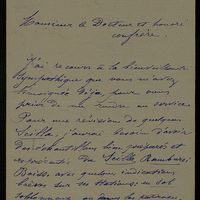 Monsieur le Docteur et honoré
confrère.
J'ai recours à la bienveillante
sympathique que vous m'avez
témoignée déjà, pour vous
prier de me rendre un service
Pour une révision de quelques
Scilla, j'aurais besoin d'avoir
des échantillons bien préparés et
représentés du Scilla Rambursi
Boiss. avec quelques indications
brèves sur ses stations; en sol